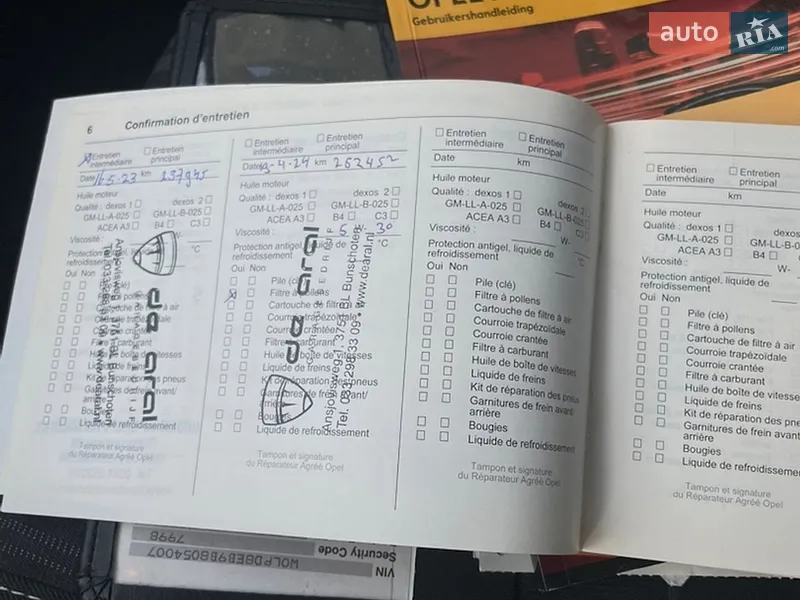 OPEL
Gebruikershandleiding
auto RIA.com
6 Confirmation d'entretien
Entretien intermédiaire
Entretien principal
Date 16.5.23 km 237945
Huile moteur
Qualité : dexos 1 dexos 2
GM-LL-A-025 GM-LL-B-025
ACEA A3 B4 C3
Viscosité : °C
Protection antigel, liquide de
refroidissement
Oui Non
Pile (clé)
Filtre à pollens
Cartouche de filtre à air
Courroie trapézoïdale
Courroie crantée
Filtre à carburant
Huile de boîte de vitesses
Liquide de freins
Kit de réparation des pneus
Garnitures de frein avant/
arrière
Bougies
Liquide de refroidissement
Tampon et signature
du Réparateur Agréé Opel
de aral
Entretien intermédiaire
Entretien principal
Date 3-4-24 km 252452
Huile moteur
Qualité : dexos 1 dexos 2
GM-LL-A-025 GM-LL-B-025
ACEA A3 B4 C3
Viscosité : 5 30
Protection antigel, liquide de
refroidissement
Oui Non
Pile (clé)
Filtre à pollens
Cartouche de filtre à air
Courroie trapézoïdale
Courroie crantée
Filtre à carburant
Huile de boîte de vitesses
Liquide de freins
Kit de réparation des pneus
Garnitures de frein avant/
arrière
Bougies
Liquide de refroidissement
Tampon et signature
du Réparateur Agréé Opel
de aral
Ansjovisweg 1, 3751 BL Bunschoten
www.dearal.nl
Entretien intermédiaire
Entretien principal
Date km
Huile moteur
Qualité : dexos 1 dexos 2
GM-LL-A-025 GM-LL-B-025
ACEA A3 B4 C3
Viscosité : W-
Protection antigel, liquide de
refroidissement °C
Oui Non
Pile (clé)
Filtre à pollens
Cartouche de filtre à air
Courroie trapézoïdale
Courroie crantée
Filtre à carburant
Huile de boîte de vitesses
Liquide de freins
Kit de réparation des pneus
Garnitures de frein avant/
arrière
Bougies
Liquide de refroidissement
Tampon et signature
du Réparateur Agréé Opel
Entretien intermédiaire
Entretien principal
Date km
Huile moteur
Qualité : dexos 1 dexos
GM-LL-A-025 GM-LL-B-0
ACEA A3 B4
Viscosité : W-
Protection antigel, liquide de
refroidissement
Oui Non
Pile (clé)
Filtre à pollens
Cartouche de filtre à air
Courroie trapézoïdale
Courroie crantée
Filtre à carburant
Huile de boîte de vitesses
Liquide de freins
Kit de réparation des pne
Garnitures de frein avant
arrière
Bougies
Liquide de refroidisseme
Tampon et signature
du Réparateur Agréé Opel
VIN W0LPD8EB9B8054007
Security Code 7998